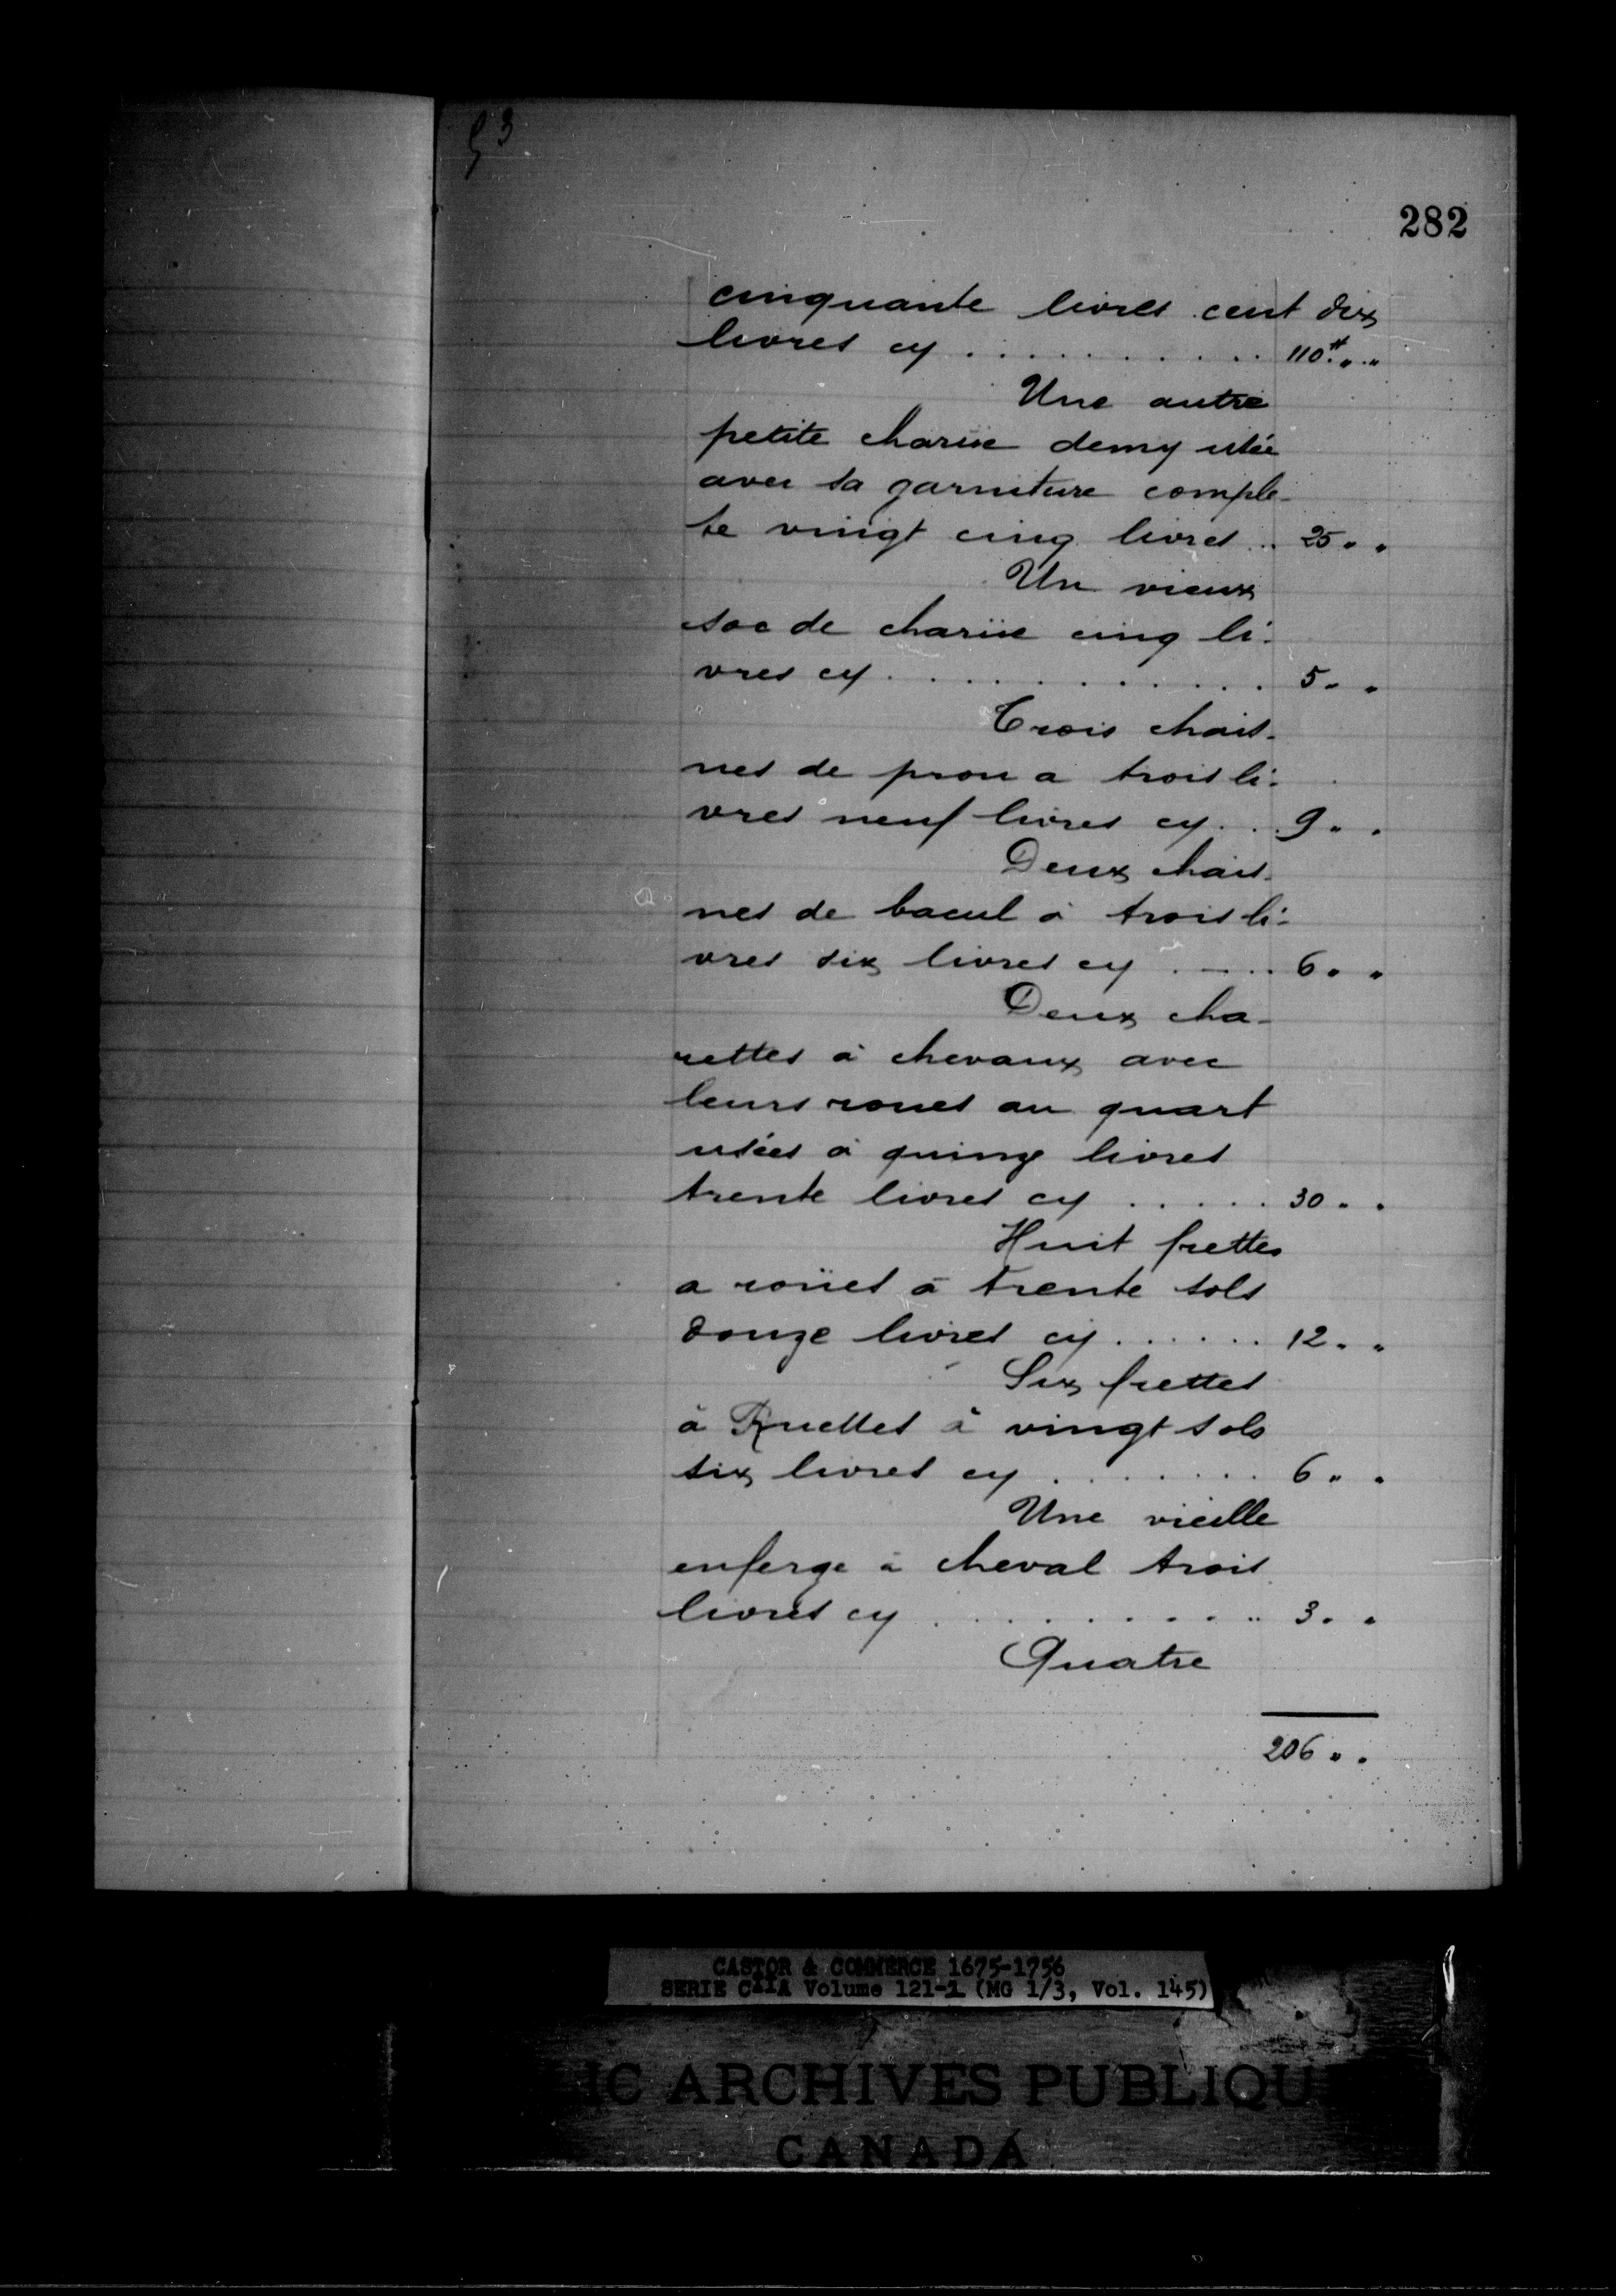 53
282
cinquante livres cent dix
livres cy . . . . . . . . . . . 110# „ „
Une autre
petite charüe demy usée
avec sa garniture comple-
te vingt cinq livres . . 25 „ „
Un vieux
soc de charüe cinq li-
vres cy . . . . . . . . . . . . . 5 „ „
Trois chais-
nes de prou a trois li-
vres neuf livres cy . . . 9 „ „
Deux chais-
nes de bacul à trois li-
vres six livres cy . . . . 6 „ „
Deux cha-
rettes à chevaux avec
leurs roues au quart
usées à quinze livres
trente livres cy . . . . . 30 „ „
Huit frettes
a roües à trente sols
douze livres cy . . . . . . 12 „ „
Six frettes
à Ruelles à vingt sols
six livres cy . . . . . . . 6 „ „
Une vieille
enferge à cheval trois
livres cy . . . . . . . . . . 3 „ „
Quatre
206 „ „
CASTOR & COMMERCE 1675-1756
SERIE C11A Volume 121-1 (MG 1/3, Vol. 145)
IC ARCHIVES PUBLIQU
CANADA